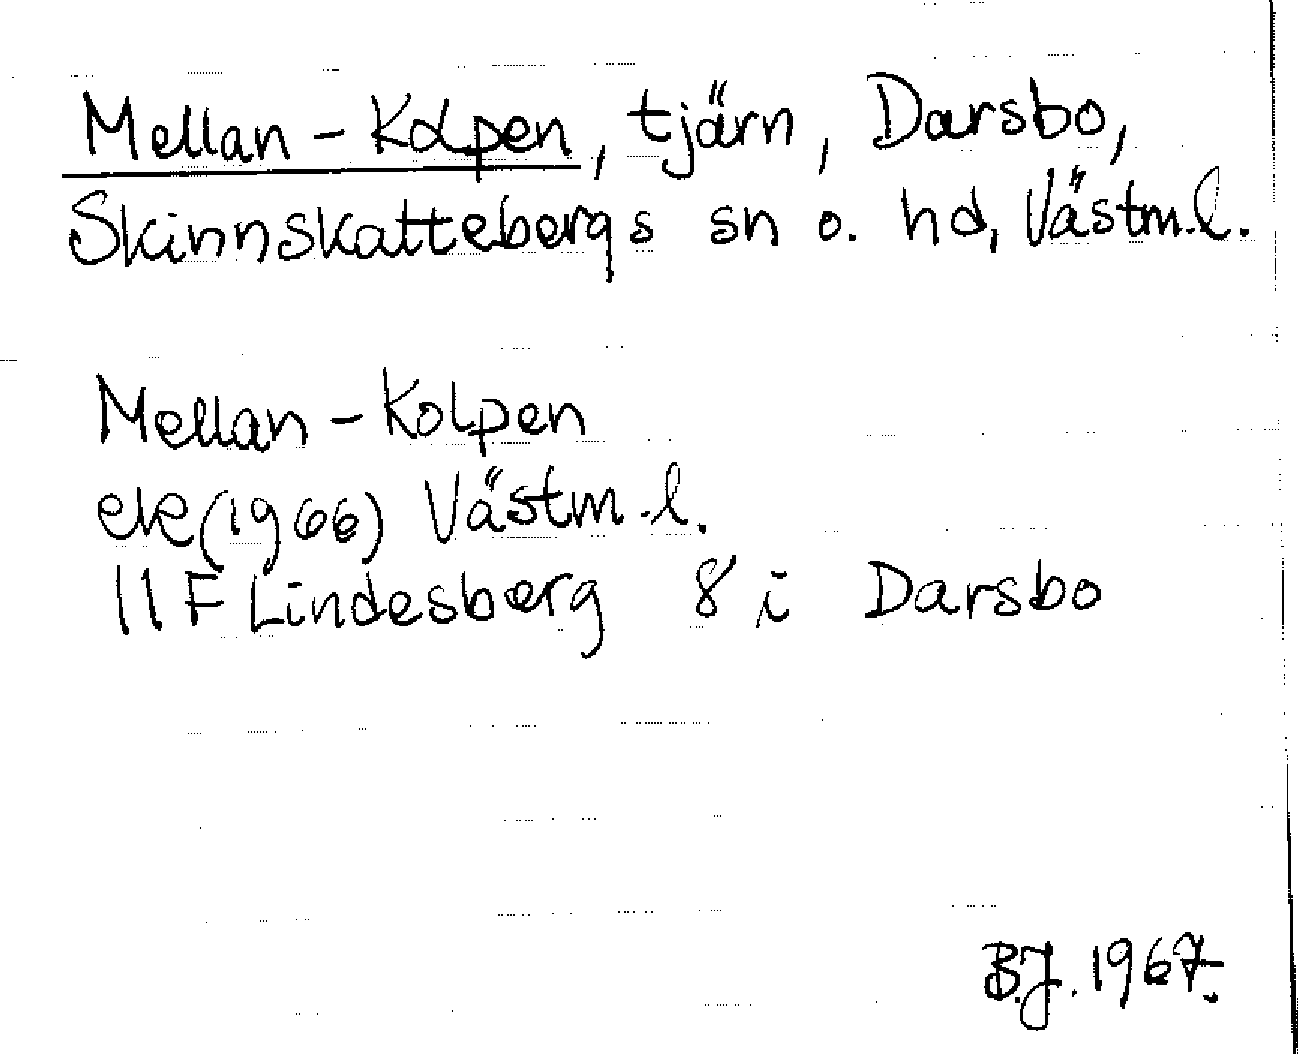 Mellan-Kolpen, tjärn, Darsbo,
Skinnskattebergs sn o. hd, Västm.l.
Mellan-Kolpen
ek(1966) Västm.l.
11F Lindesberg 8 i Darsbo
B.J. 1967.